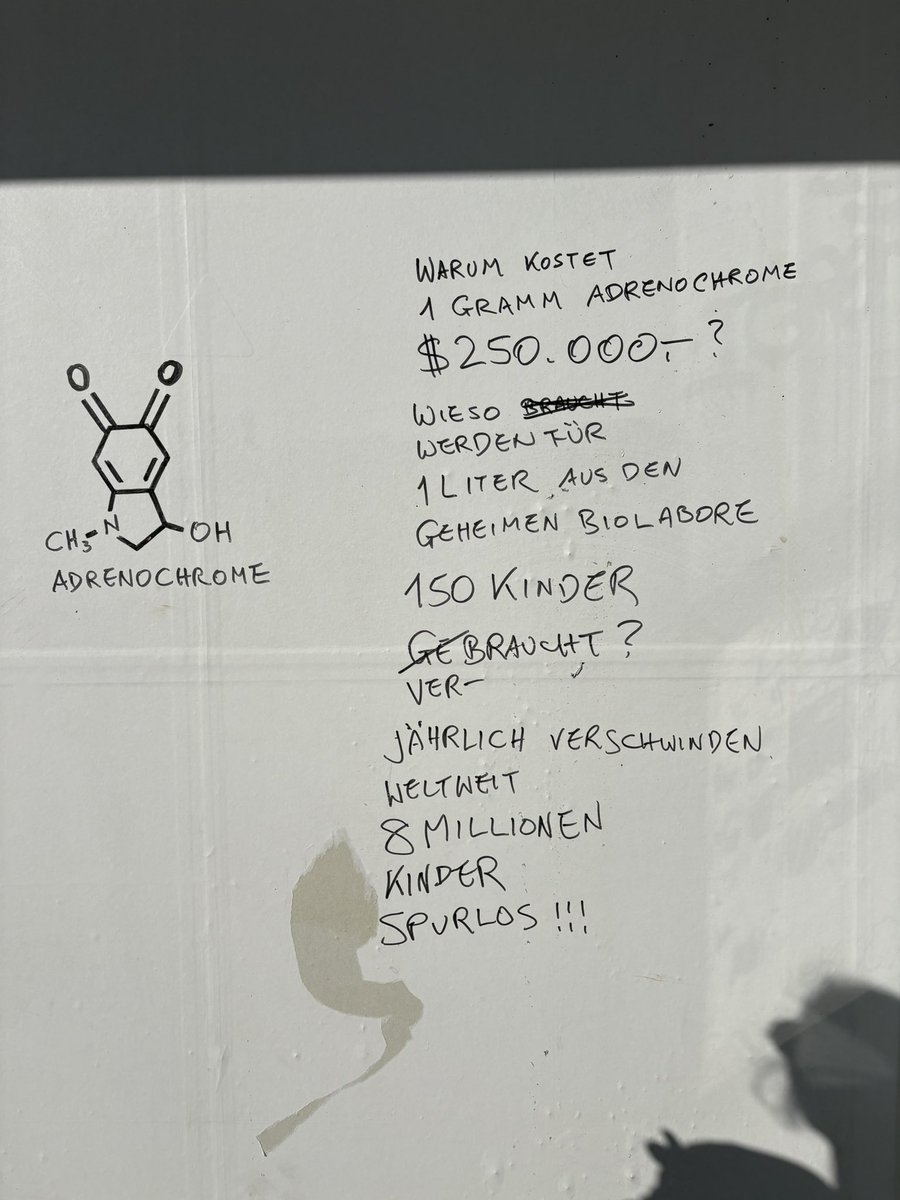 O O
N
CH₃
OH
ADRENOCHROME
WARUM KOSTET
1 GRAMM ADRENOCHROME
$250.000,- ?
WIESO BRAUCHT
WERDEN FÜR
1 LITER AUS DEN
GEHEIMEN BIOLABORE
150 KINDER
GEBRAUCHT ?
VER-
JÄHRLICH VERSCHWINDEN
WELTWEIT
8 MILLIONEN
KINDER
SPURLOS !!!